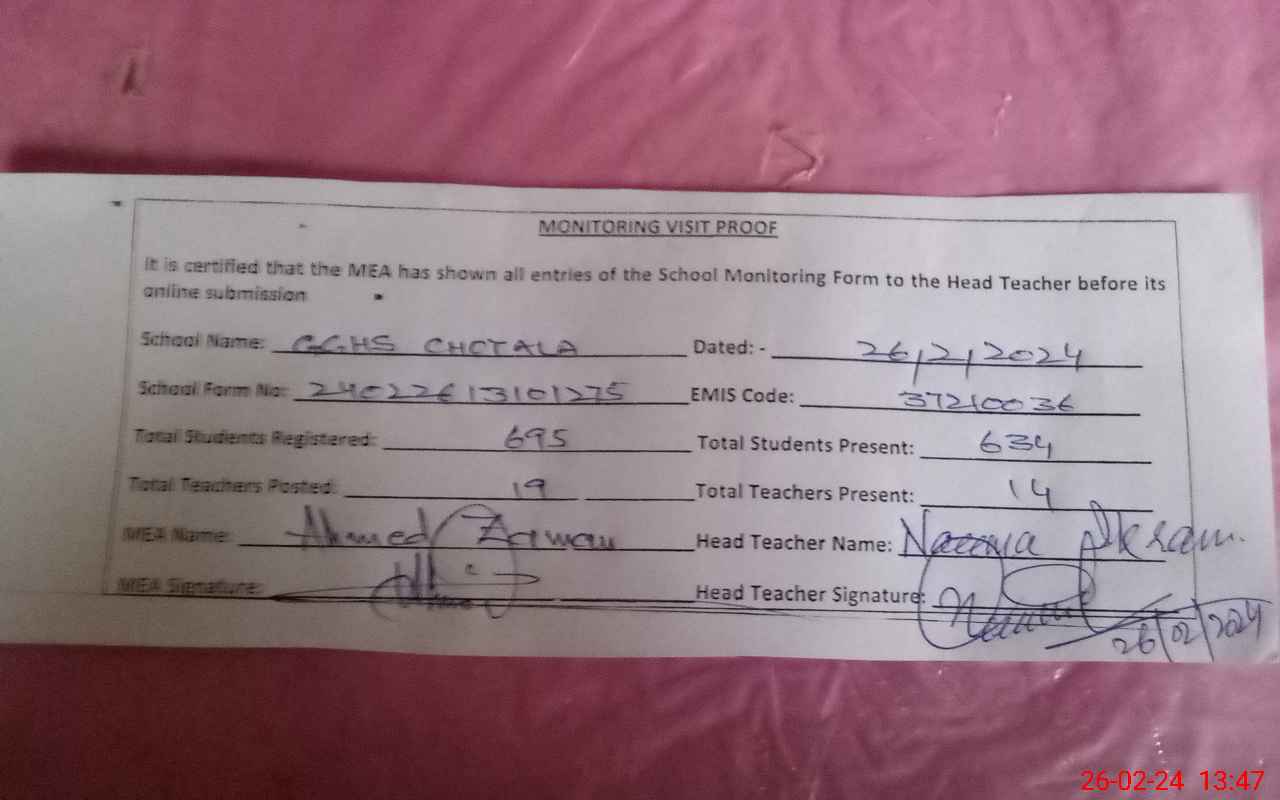 MONITORING VISIT PROOF
It is certified that the MEA has shown all entries of the School Monitoring Form to the Head Teacher before its
online submission
School Name: GGHS CHOTALA Dated: - 26/2/2024
School Form No: 24022613101275 EMIS Code: 37210036
Total Students Registered: 695 Total Students Present: 634
Total Teachers Posted: 19 Total Teachers Present: 14
MEA Name: Ahmed Zaman Head Teacher Name: Akram.
MEA Signature: Head Teacher Signature:
26/02/2024
26-02-24 13:47